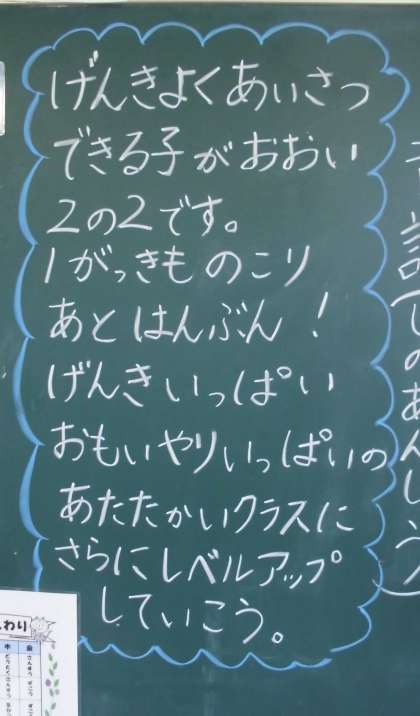 げんきよくあいさつ
できる子がおおい
2の2です。
1がっきものこり
あとはんぶん！
げんきいっぱい
おもいやりいっぱいの
あたたかいクラスに
さらにレベルアップ
していこう。
わり
木
金